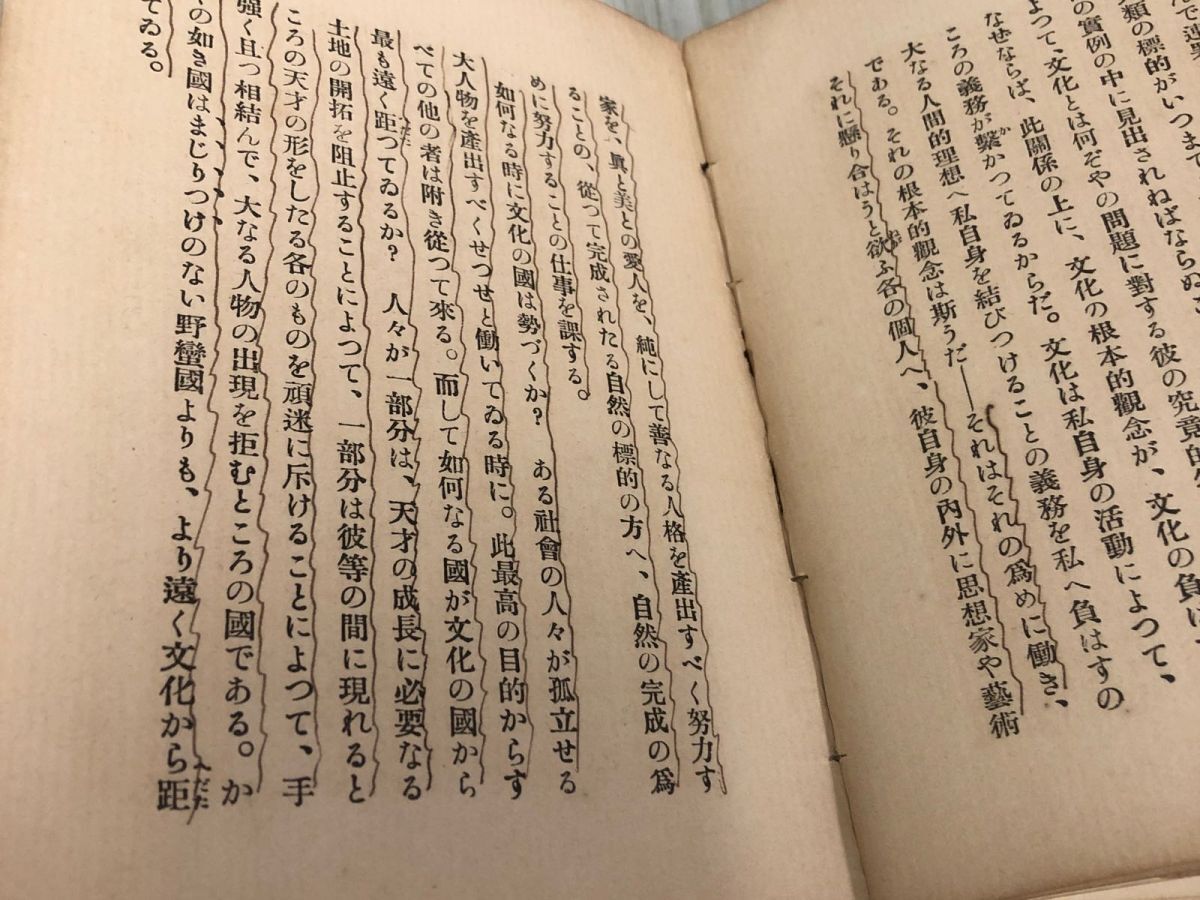 んで連
人類の標的がいつまで
の實例の中に見出されねばならぬ
よつて、文化とは何ぞやの問題に對する彼の究竟的
なぜならば、此關係の上に、文化の根本的觀念が、文化の負は、
ころの義務が繋かつてゐるからだ。文化は私自身の活動によつて、
大なる人間的理想へ私自身を結びつけることの義務を私へ負はすの
である。それの根本的觀念は斯うだ――それはそれの爲めに働き、
それに懸り合はうと欲ふ各の個人へ、彼自身の內外に思想家や藝術
家を、眞と美との愛人を、純にして善なる人格を產出すべく努力す
ることの、從つて完成されたる自然の標的の方へ、自然の完成の爲
めに努力することの仕事を課する。
如何なる時に文化の國は勢づくか？　ある社會の人々が孤立せる
大人物を產出すべくせつせと働いてゐる時に。此最高の目的からす
べての他の者は附き從つて來る。而して如何なる國が文化の國から
最も遠く距つてゐるか？　人々が一部分は、天才の成長に必要なる
土地の開拓を阻止することによつて、一部分は彼等の間に現れると
ころの天才の形をしたる各のものを頑迷に斥けることによつて、手
強く且つ相結んで、大なる人物の出現を拒むところの國である。か
の如き國はまじりつけのない野蠻國よりも、より遠く文化から距
てゐる。